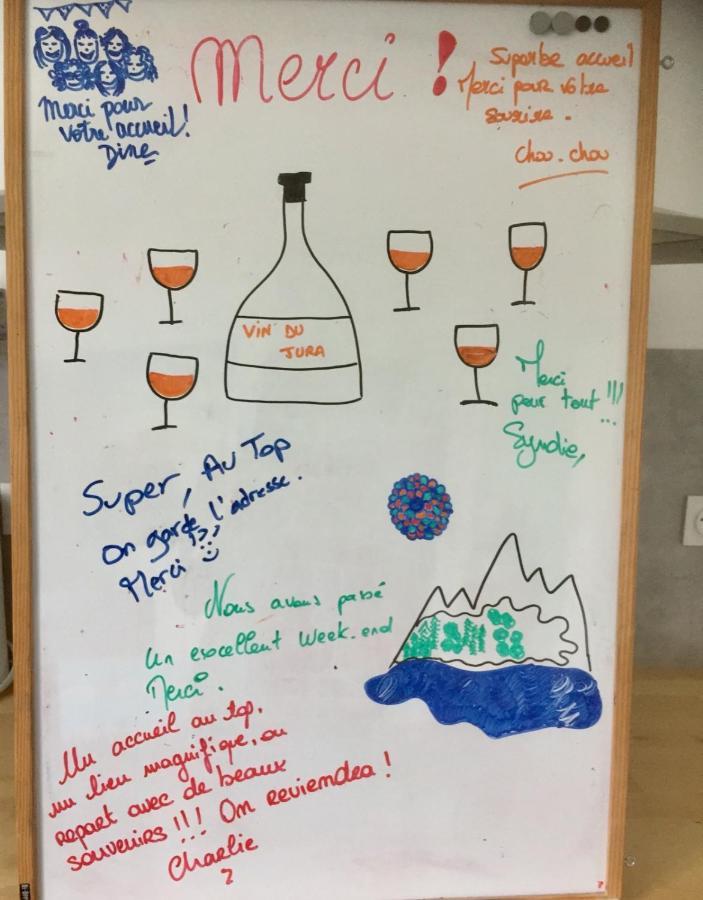 Merci !
Merci pour
votre accueil!
Dine
Superbe accueil
Merci pour votre
sourire.
Chou-chou
VIN DU
JURA
Merci
pour tout !!!
Syndie,
Super, Au Top
on garde l'adresse.
Merci
Nous avons passé
un excellent week-end
Merci.
Un accueil au top,
un lieu magnifique, on
repart avec de beaux
souvenirs !!! On reviendra !
Charlie